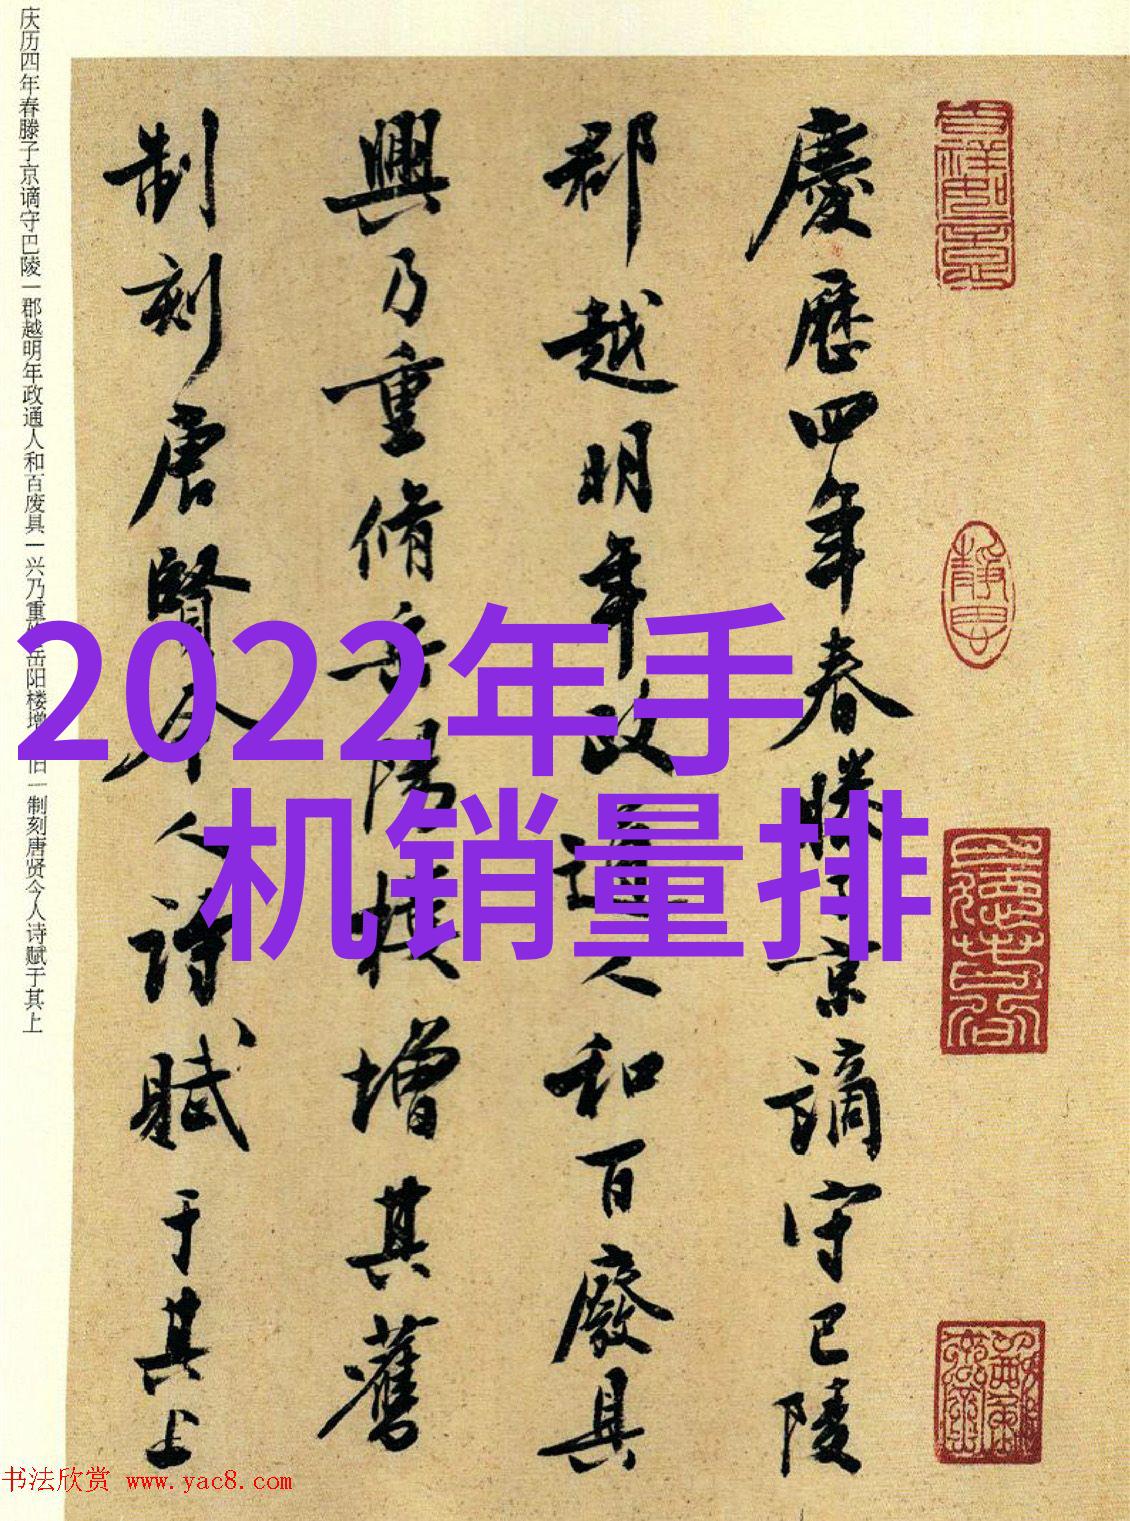 2022年手
机销量排
慶歷四年春滕子京謫守巴陵
郡越明年政通人和百廢具
興乃重脩岳陽樓增其舊
制刻唐賢今人詩賦于其上
庆历四年春滕子京谪守巴陵一郡越明年政通人和百废具一兴乃重修岳阳楼增旧一制刻唐贤今人诗赋于其上
书法欣赏 www.yac8.com